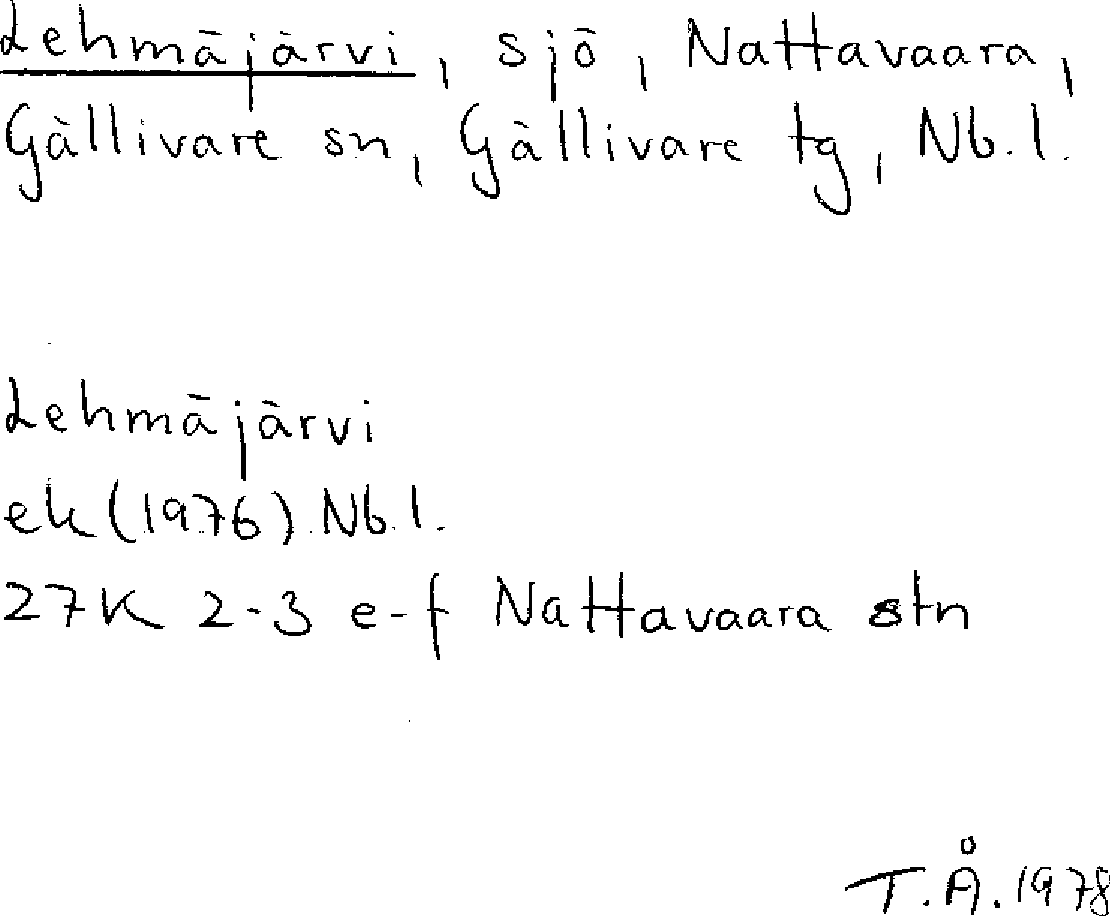 Lehmäjärvi, sjö, Nattavaara,
Gällivare sn, Gällivare tg, Nb.l.
Lehmäjärvi
ek (1976) Nb.l.
27K 2-3 e-f Nattavaara stn
T.Å. 1978